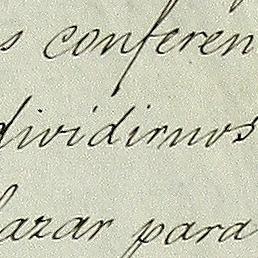 s conferen
dividirnos
azar para